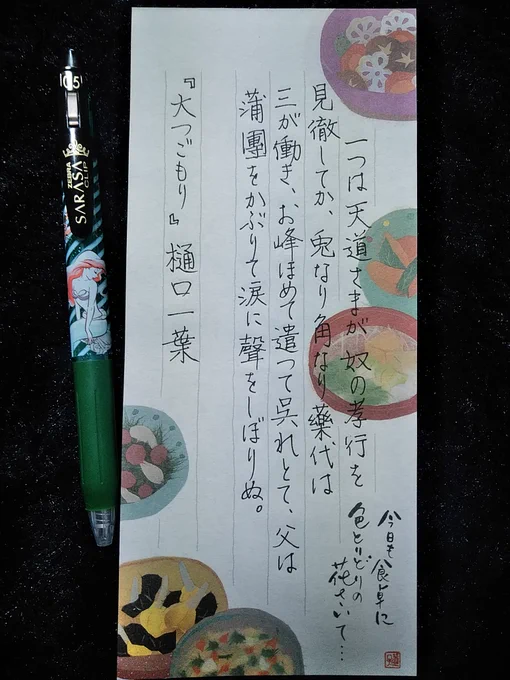 一つは天道さまが奴の孝行を
見徹してか、兎なり角なり藥代は
三が働き、お峰ほめて遣つて呉れとて、父は
蒲團をかぶりて涙に聲をしぼりぬ。
『大つごもり』樋口一葉
今日も食卓に
色とりどりの
花さいて…
0.5
ZEBRA
SARASA
CLIP